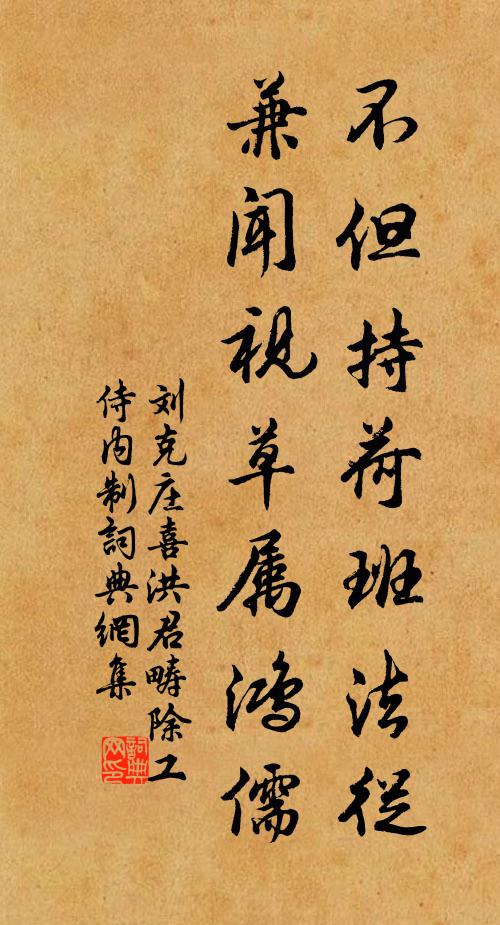 不但持荷班法從
兼闻視草属鸿儒
刘克庄喜洪君畴除工
侍内制詞典網集
詞典网印